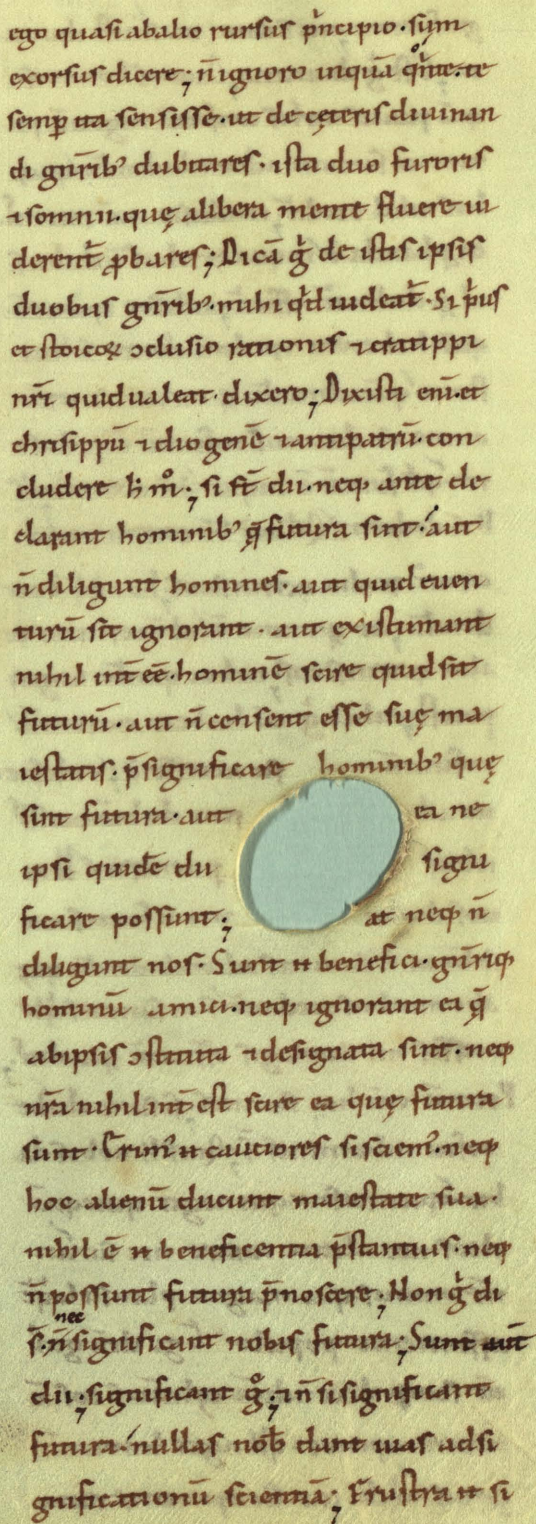 ego quasi ab alio rursus pͥncipio · sum
exorsus dicere; n̄ ignoro inquā qͦnte · te
semꝑ ita sensisse · ut de cęteris diuinan
di gn̄rib᾽ dubitares · ista duo furoris
⁊ somnii · quę a libera mente fluere ui
derent᷑ ꝓbares; Dicā gͥ de istis ipsis
duobus gn̄rib᾽ · mihi qͥd uideat᷑ · Si pͥus
et stoicoꝝ ↄclusio rationis ⁊ cratippi
nr̄i quid ualeat · dixero; Dixisti eni᷑ · et
chrisippū ⁊ diogenē ⁊ antipatrū · con
cludere h̄ mͦ; si st̄ dii · neqꝫ ante de
clarant hominib᾽ q̄ futura sint · aut
n̄ diligunt homines · aut quid euen
turū sit ignorant · aut existimant
nihil int̄ eē · hominē scire quid sit
futurū · aut n̄ censent esse suę ma
iestatis · p̄significare hominib᾽ quę
sint futura · aut ea ne
ipsi quidē dii signi
ficare possunt; at neqꝫ n̄
diligunt nos · Sunt n̄ benefici · gn̄riqꝫ
hominū amici · neqꝫ ignorant ea q̄
ab ipsis ↄstituta ⁊ designata sint · neqꝫ
nr̄a nihil int̄est scire ea quę futura
sunt · Erim᷑ n̄ cautiores si sciem᷑ · neqꝫ
hoc alienū ducunt maiestate sua ·
nihil ē n̄ beneficentia p̄stantius · neqꝫ
n̄ possunt futura p̄noscere; Non gͥ di
s̄ · n̄ nec significant nobis futura; Sunt aut̄
dii; significant gͦ; ⁊ n̄ si significant
futura · nullas nob̄ dant uias ad si
gnificationū scientiā; Frustra n̄ si